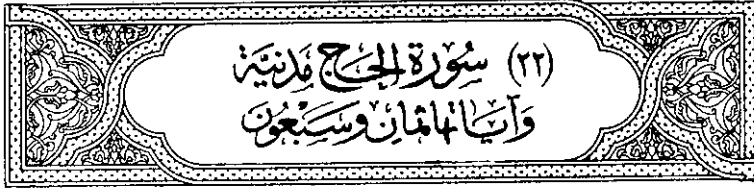 (٢٢) سُورَةُ الحَجِّ مَدَنِيَّةٌ
وَآيَاتُهَا ثَمَانٍ وَسَبْعُونَ